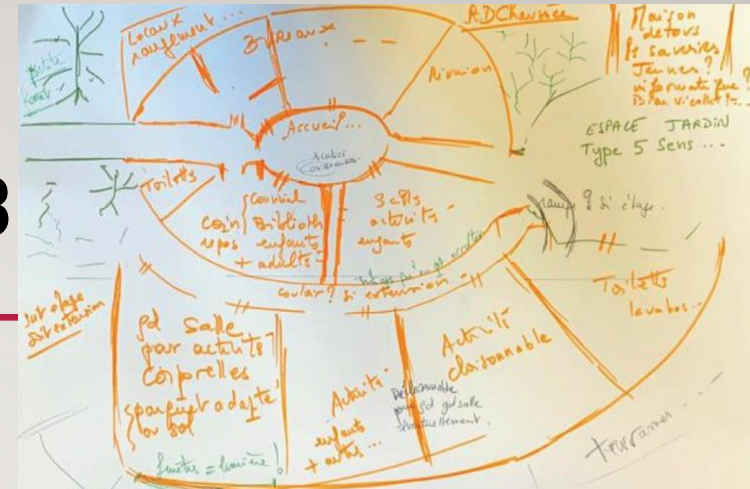 Locaux
rangement...
Bureaux
R.D Chaussée
Réunion
Maison
de tous
les savoirs
Jeunes ?
Bien vieillir ?...
ESPACE JARDIN
Type 5 Sens ...
petite
Accueil...
Toilettes
coin
repos
convivial
Biblioth
enfants
+ adultes
3 salles
activités
enfants
rampe ? Si étage.
couloir ? si extension
Toilettes
lavabos...
Soit étage
Soit extension
gd salle
pour activités
corporelles
parquet adapté
ou sol
fenêtres = lumière !
Activités
enfants
+ autres...
Activité
cloisonnable
gd salle
éventuellement.